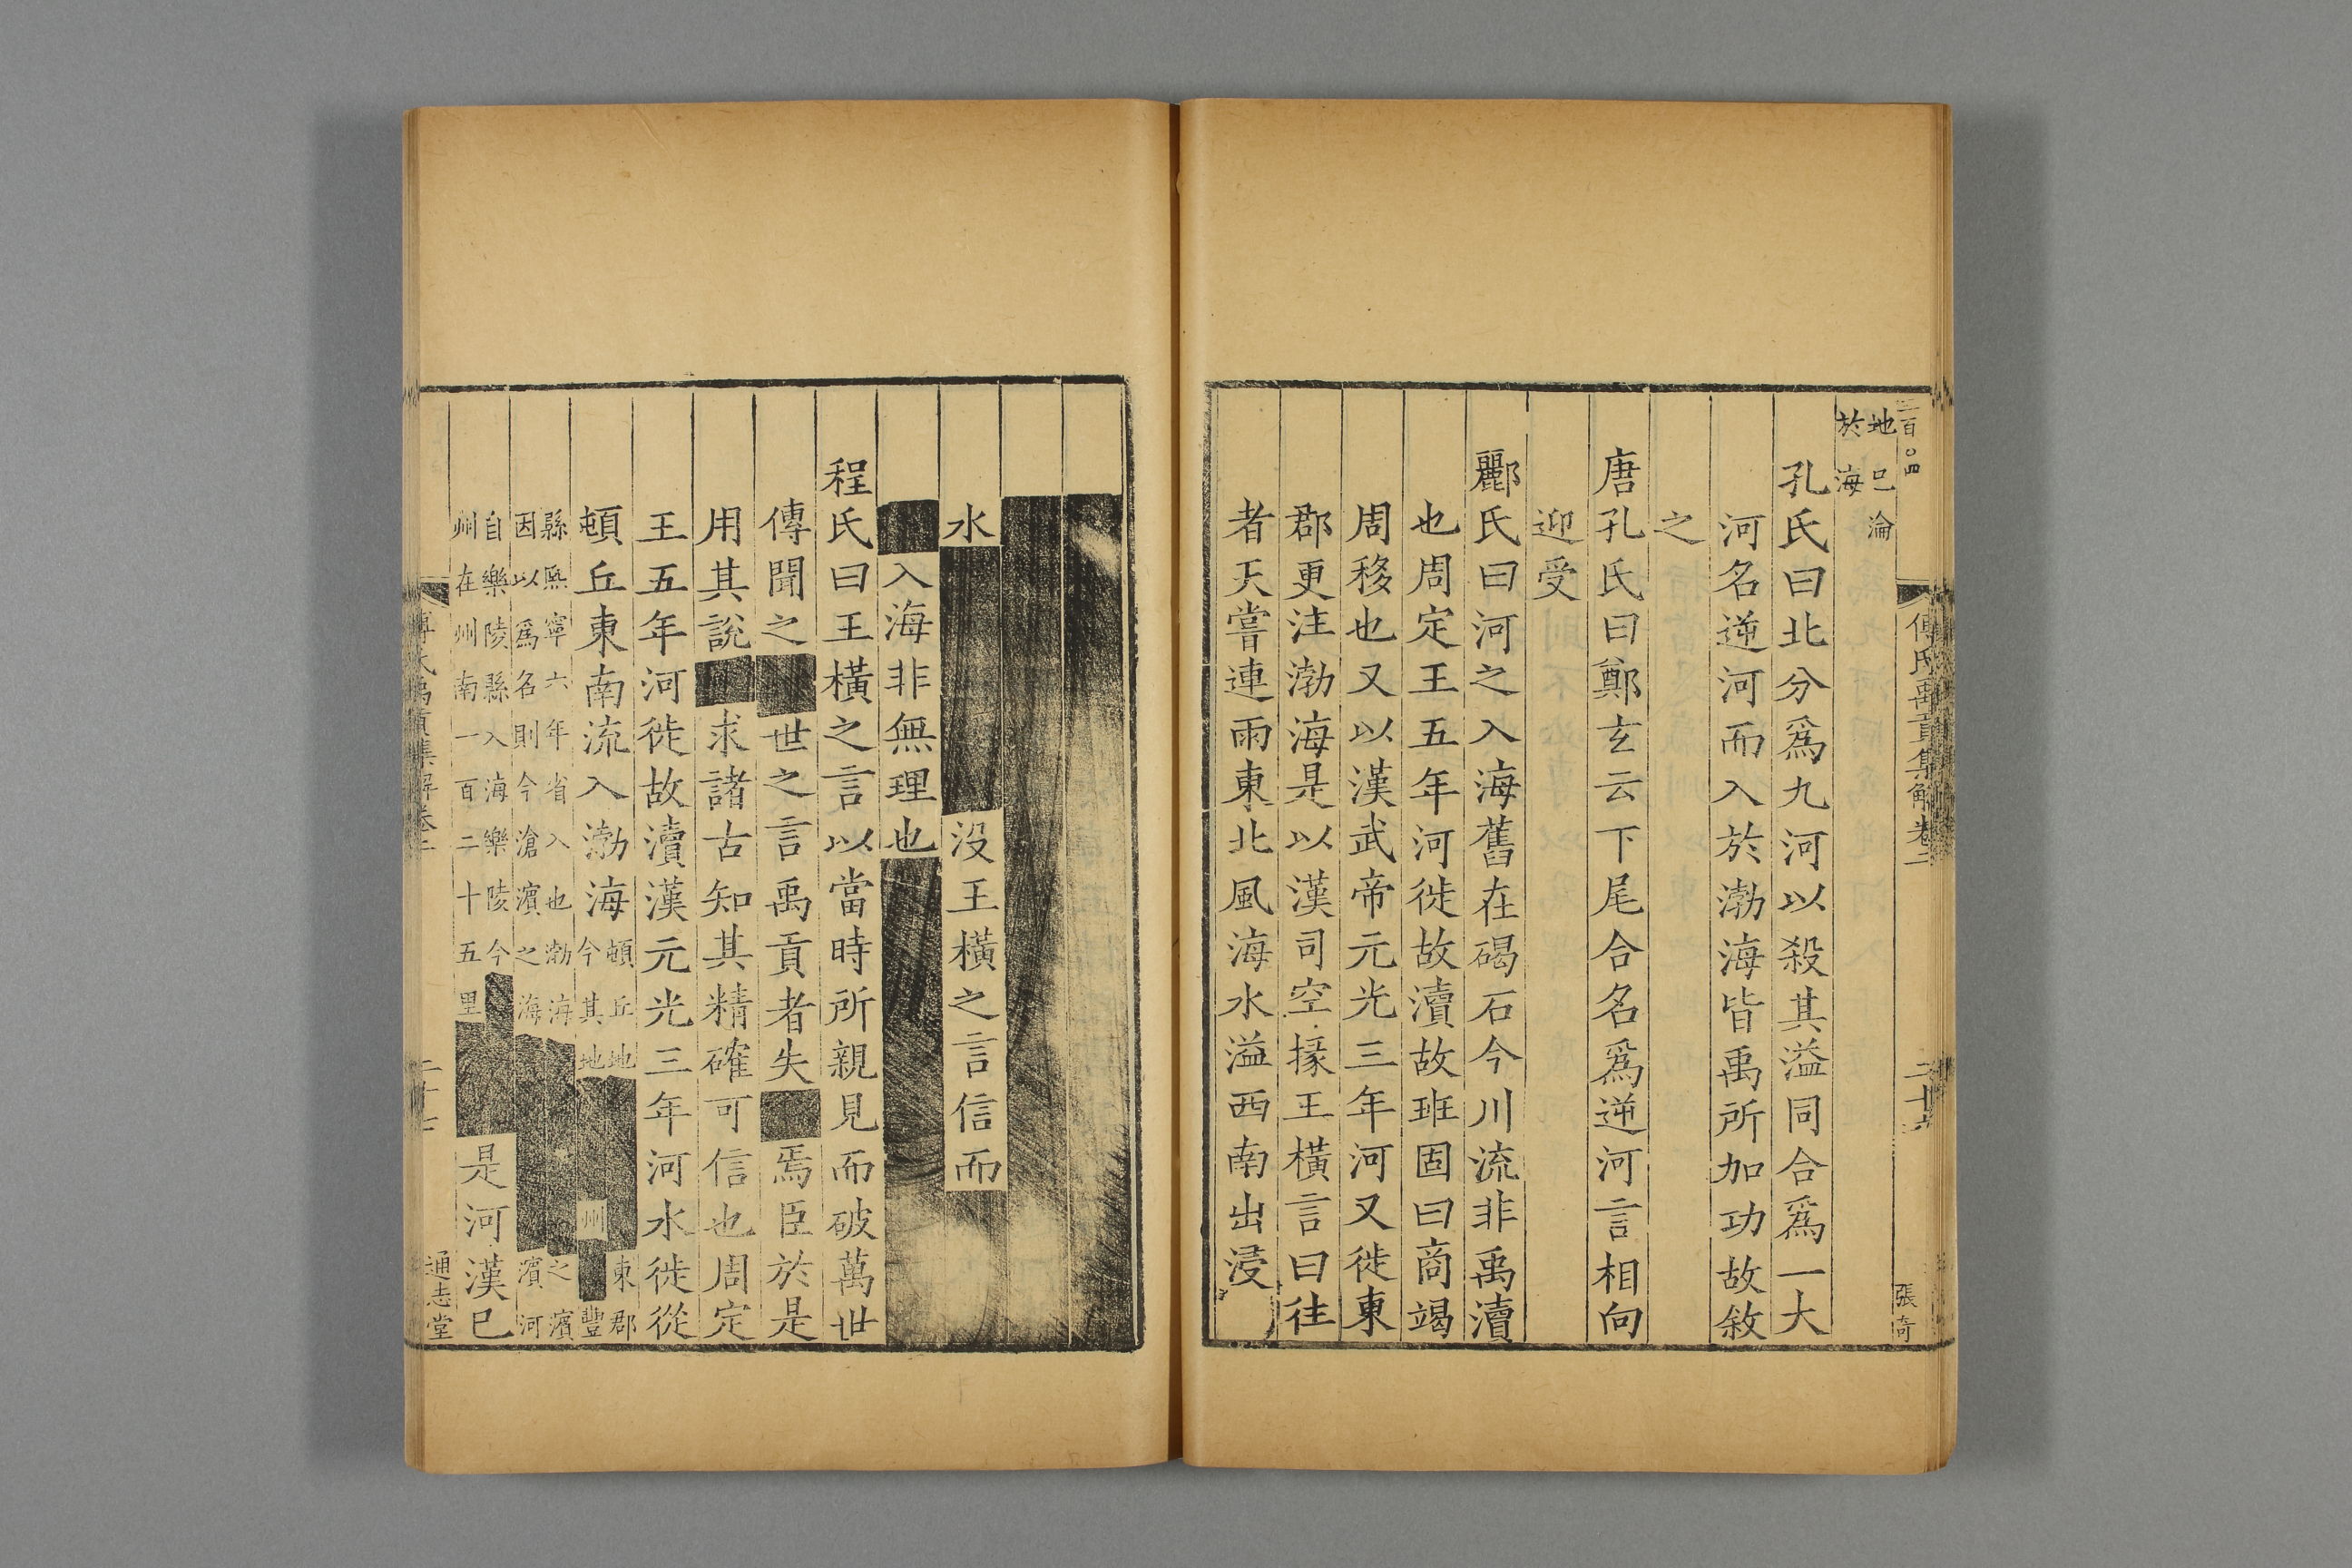 三百〇四
傅氏禹貢集解卷二
二十六
張奇
地巳淪
於海
孔氏曰北分爲九河以殺其溢同合爲一大
河名逆河而入於渤海皆禹所加功故敘
之
唐孔氏曰鄭玄云下尾合名爲逆河言相向
迎受
酈氏曰河之入海舊在碣石今川流非禹瀆
也周定王五年河徙故瀆故班固曰商竭
周移也又以漢武帝元光三年河又徙東
郡更注渤海是以漢司空掾王橫言曰往
者天嘗連雨東北風海水溢西南出浸
水
没王橫之言信而
入海非無理也
程氏曰王橫之言以當時所親見而破萬世
傳聞之
世之言禹貢者失
焉臣於是
用其說
求諸古知其精確可信也周定
王五年河徙故瀆漢元光三年河水徙從
頓丘東南流入渤海
頓丘地
東郡
今其地
州
豐
縣熙寧六年省入也渤海
之濱
因以爲名則今滄濱之海
濱河
自樂陵縣入海樂陵今
州在州南一百二十五里
是河漢巳
傅氏禹貢集解卷二
二十七
通志堂